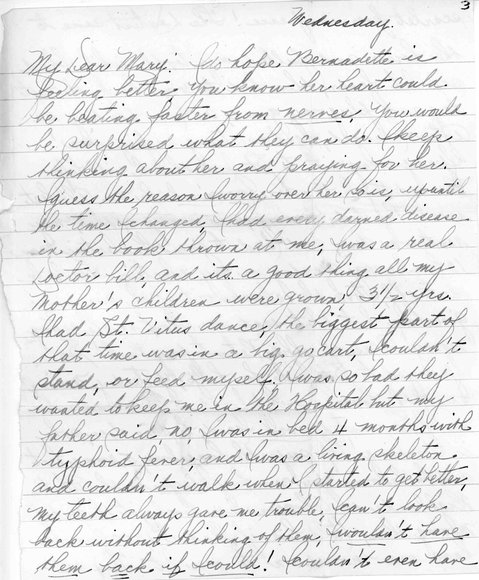 3
Wednesday.
My Dear Mary. I do hope Bernadette is
feeling better, you know her heart could
be beating faster from nerves, you would
be surprised what they can do. I keep
thinking about her and praying for her.
I guess the reason I worry over her so is, up until
the time I changed, I had every darned disease
in the book thrown at me, I was a real
Doctor bill, and its a good thing all my
Mother's children were grown. 3 1/2 yrs.
I had St. Vitus dance, the biggest part of
that time was in a big go cart, I couldn't
stand, or feed myself. I was so bad they
wanted to keep me in the Hospital but my
father said, no, I was in bed 4 months with
typhoid fever, and I was a living skeleton
and couldn't walk when I started to get better,
my teeth always gave me trouble, I can't look
back without thinking of them, I wouldn't have
them back if I could! I couldn't even have